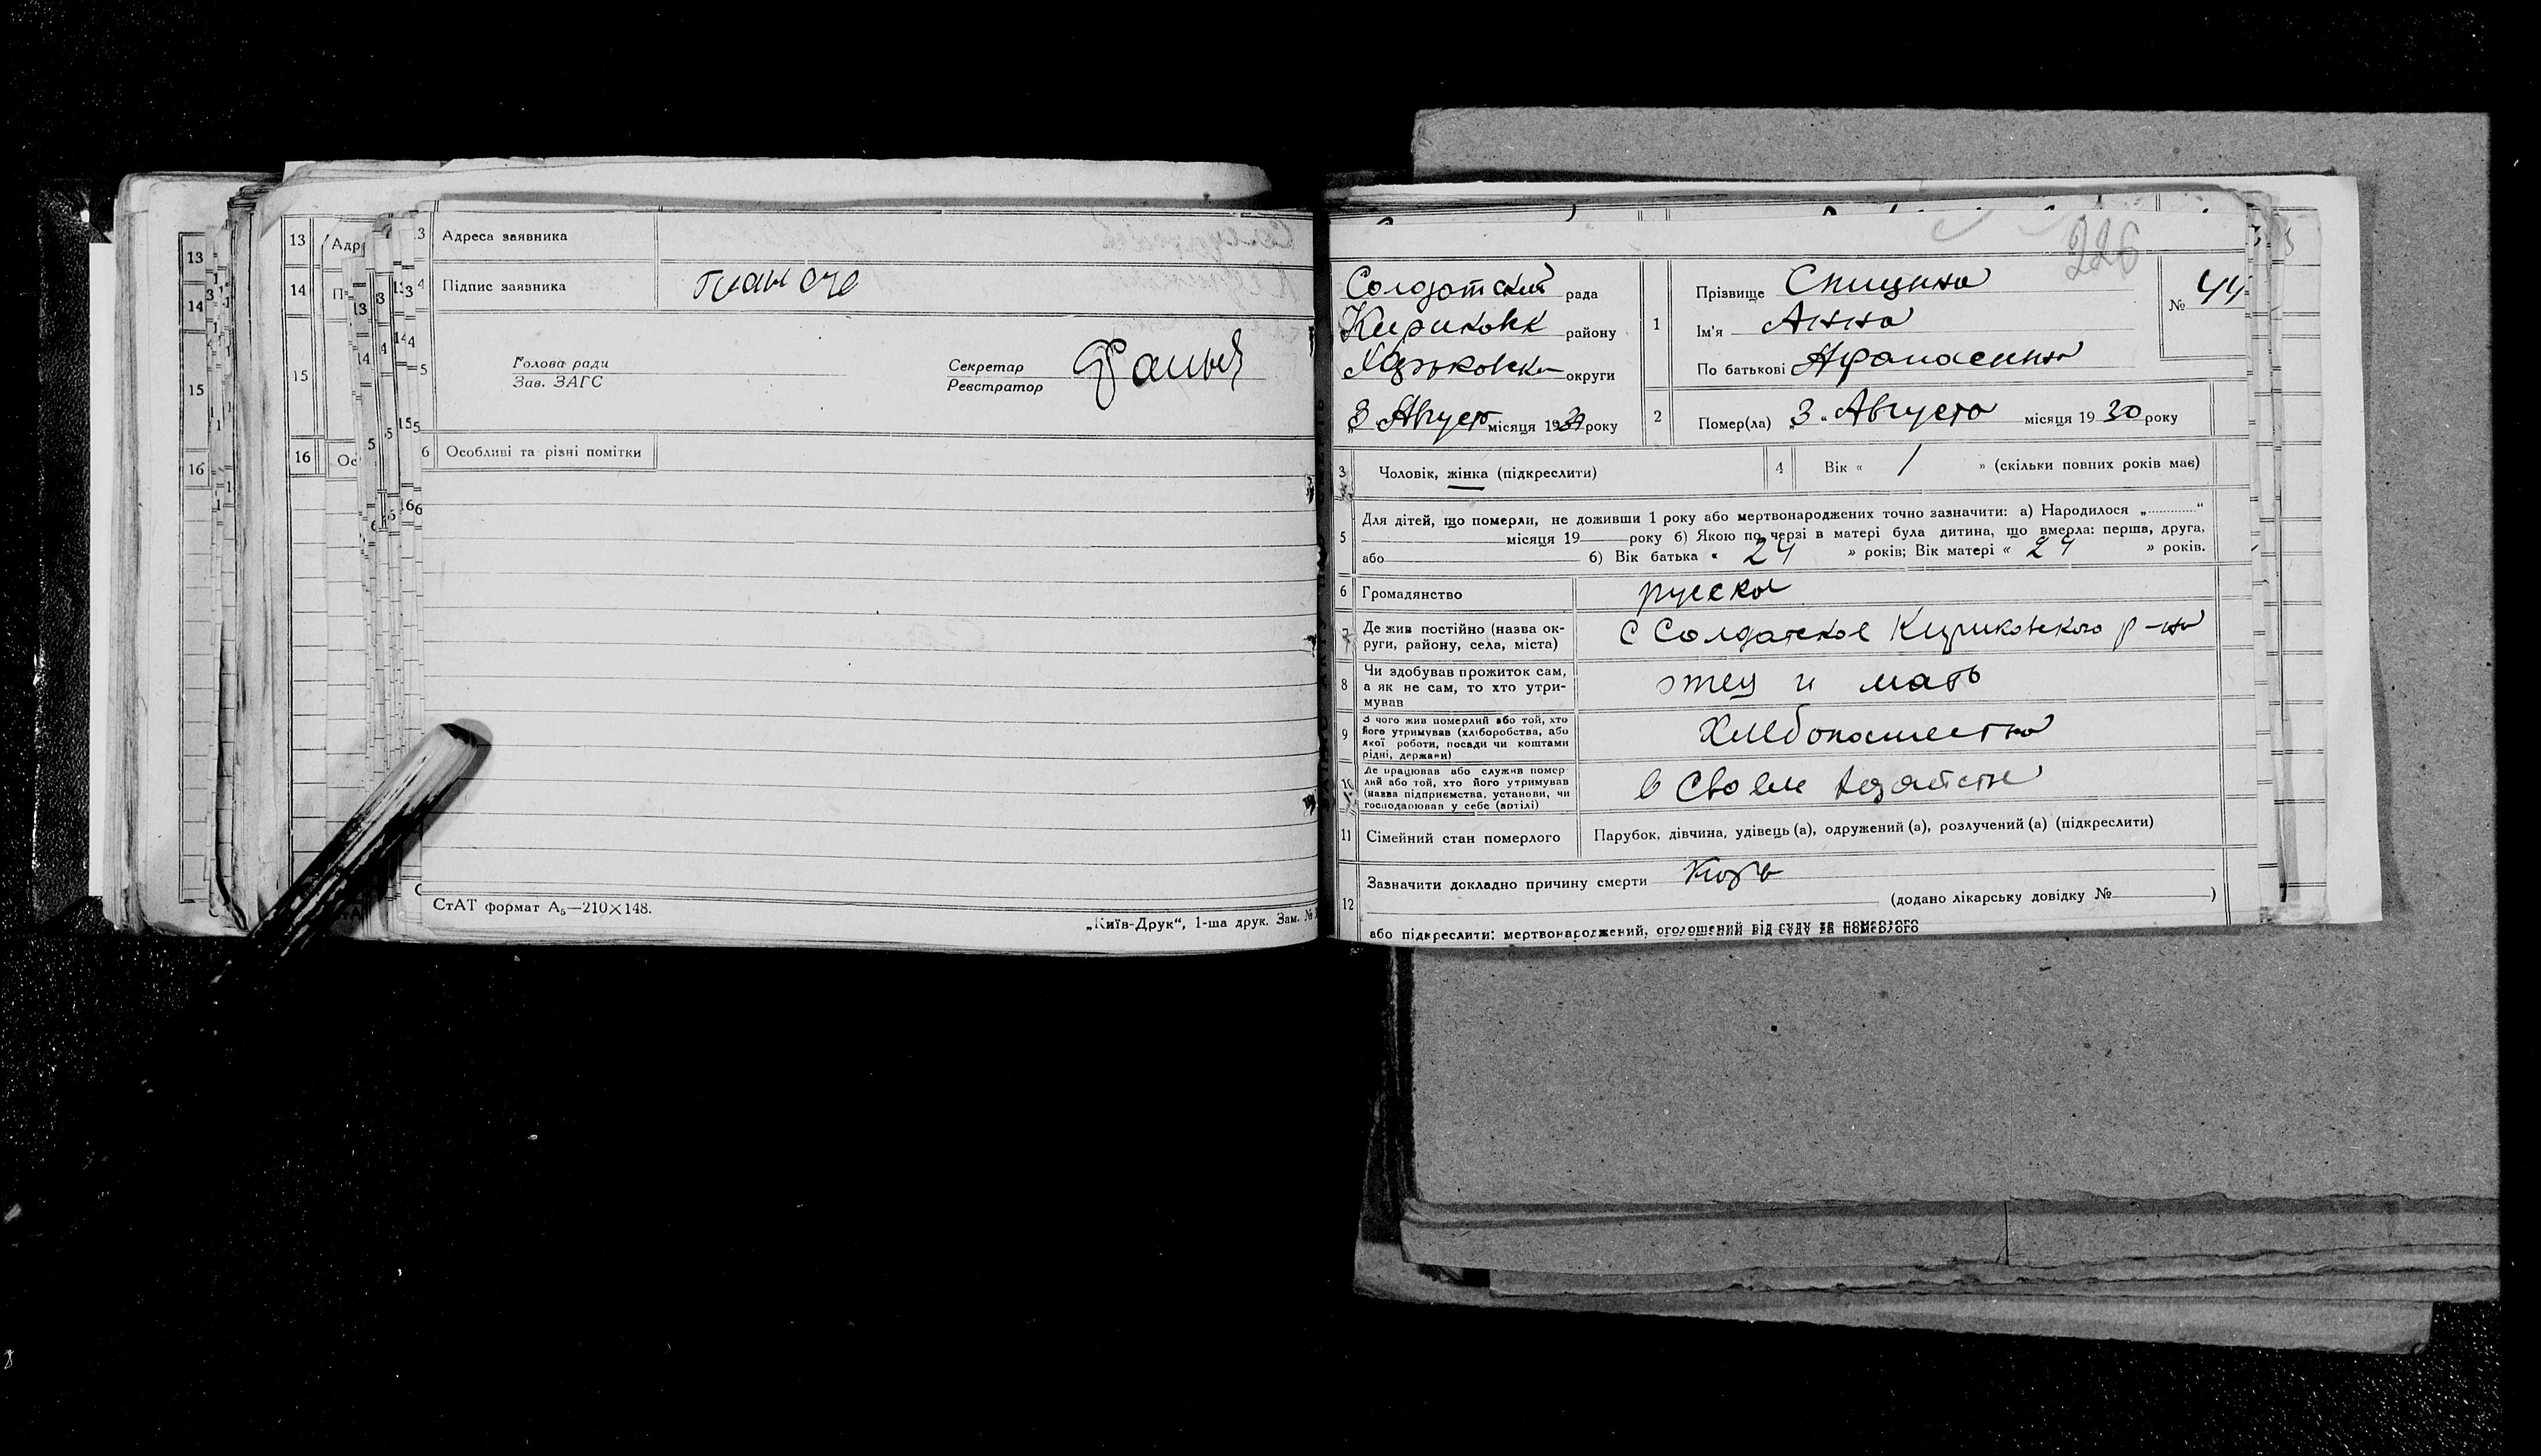 13
14
15
16
13
14
15
16
Адр
Ос
3 Адреса заявника
4 Підпис заявника
5
Голова ради
Зав. ЗАГС
Секретар
Реєстратор
6 Особливі та різні помітки
СтАТ формат А₅—210×148.
„Київ-Друк“, 1-ша друк. Зам. №
226
Солдатский рада
Кириковск району
Харьковск округи
„3 Август місяця 1930 року
1
Прізвище Спицина
Ім'я Анна
По батькові Афанасьевна
№ 44
2 Помер(ла) „3 “ Августа місяця 19 30 року
3 Чоловік, жінка (підкреслити)
4 Вік « 1 » (скільки повних років має)
5 Для дітей, що померли, не доживши 1 року або мертвонароджених точно зазначити: а) Народилося „............“
місяця 19 року б) Якою по черзі в матері була дитина, що вмерла: перша, друга,
або б) Вік батька « 24 » років; Вік матері « 24 » років.
6 Громадянство русская
7 Де жив постійно (назва ок-
руги, району, села, міста)
С Солдатское Кириковского р-на
8 Чи здобував прожиток сам,
а як не сам, то хто утри-
мував
отец и мать
9 З чого жив померлий або той, хто
його утримував (хліборобства, або
якої роботи, посади чи коштами
рідні, держави)
Хлебопашества
10 Де працював або служив помер
лий або той, хто його утримував
(назва підприємства, установи, чи
господарював у себе (артілі)
в своем хозяйстве
11 Сімейний стан померлого
Парубок, дівчина, удівець (а), одружений (а), розлучений (а) (підкреслити)
12 Зазначити докладно причину смерти Корь
(додано лікарську довідку № )
або підкреслити: мертвонароджений, оголошений від суду за померлого